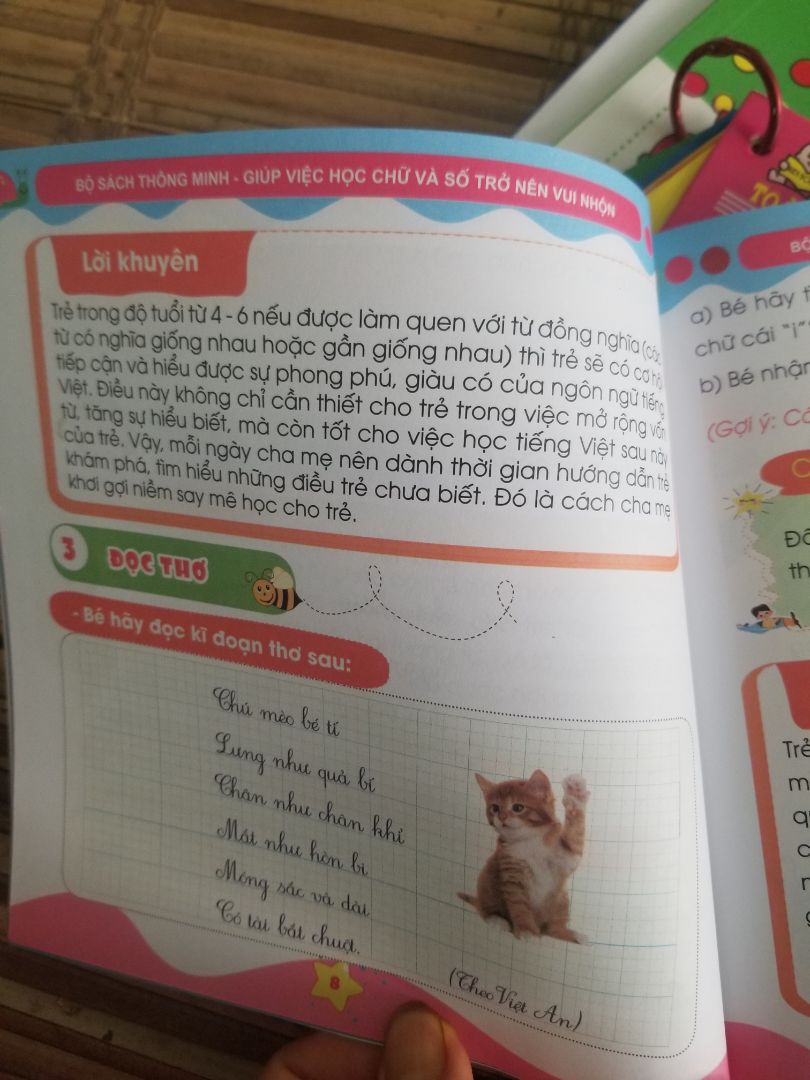 BỘ SÁCH THÔNG MINH - GIÚP VIỆC HỌC CHỮ VÀ SỐ TRỞ NÊN VUI NHỘN
Lời khuyên
Trẻ trong độ tuổi từ 4 - 6 nếu được làm quen với từ đồng nghĩa (các
từ có nghĩa giống nhau hoặc gần giống nhau) thì trẻ sẽ có cơ hội
tiếp cận và hiểu được sự phong phú, giàu có của ngôn ngữ tiếng
Việt. Điều này không chỉ cần thiết cho trẻ trong việc mở rộng vốn
từ, tăng sự hiểu biết, mà còn tốt cho việc học tiếng Việt sau này
của trẻ. Vậy, mỗi ngày cha mẹ nên dành thời gian hướng dẫn trẻ
khám phá, tìm hiểu những điều trẻ chưa biết. Đó là cách cha mẹ
khơi gợi niềm say mê học cho trẻ.
3 ĐỌC THƠ
- Bé hãy đọc kĩ đoạn thơ sau:
Chú mèo bé tí
Lưng như quả bí
Chân như chân khỉ
Mắt như hòn bi
Móng sắc và dài
Có tài bắt chuột.
(Theo Việt An)
8
BỘ
a) Bé hãy
chữ cái "i"
b) Bé nhận
(Gợi ý: Có
Trẻ